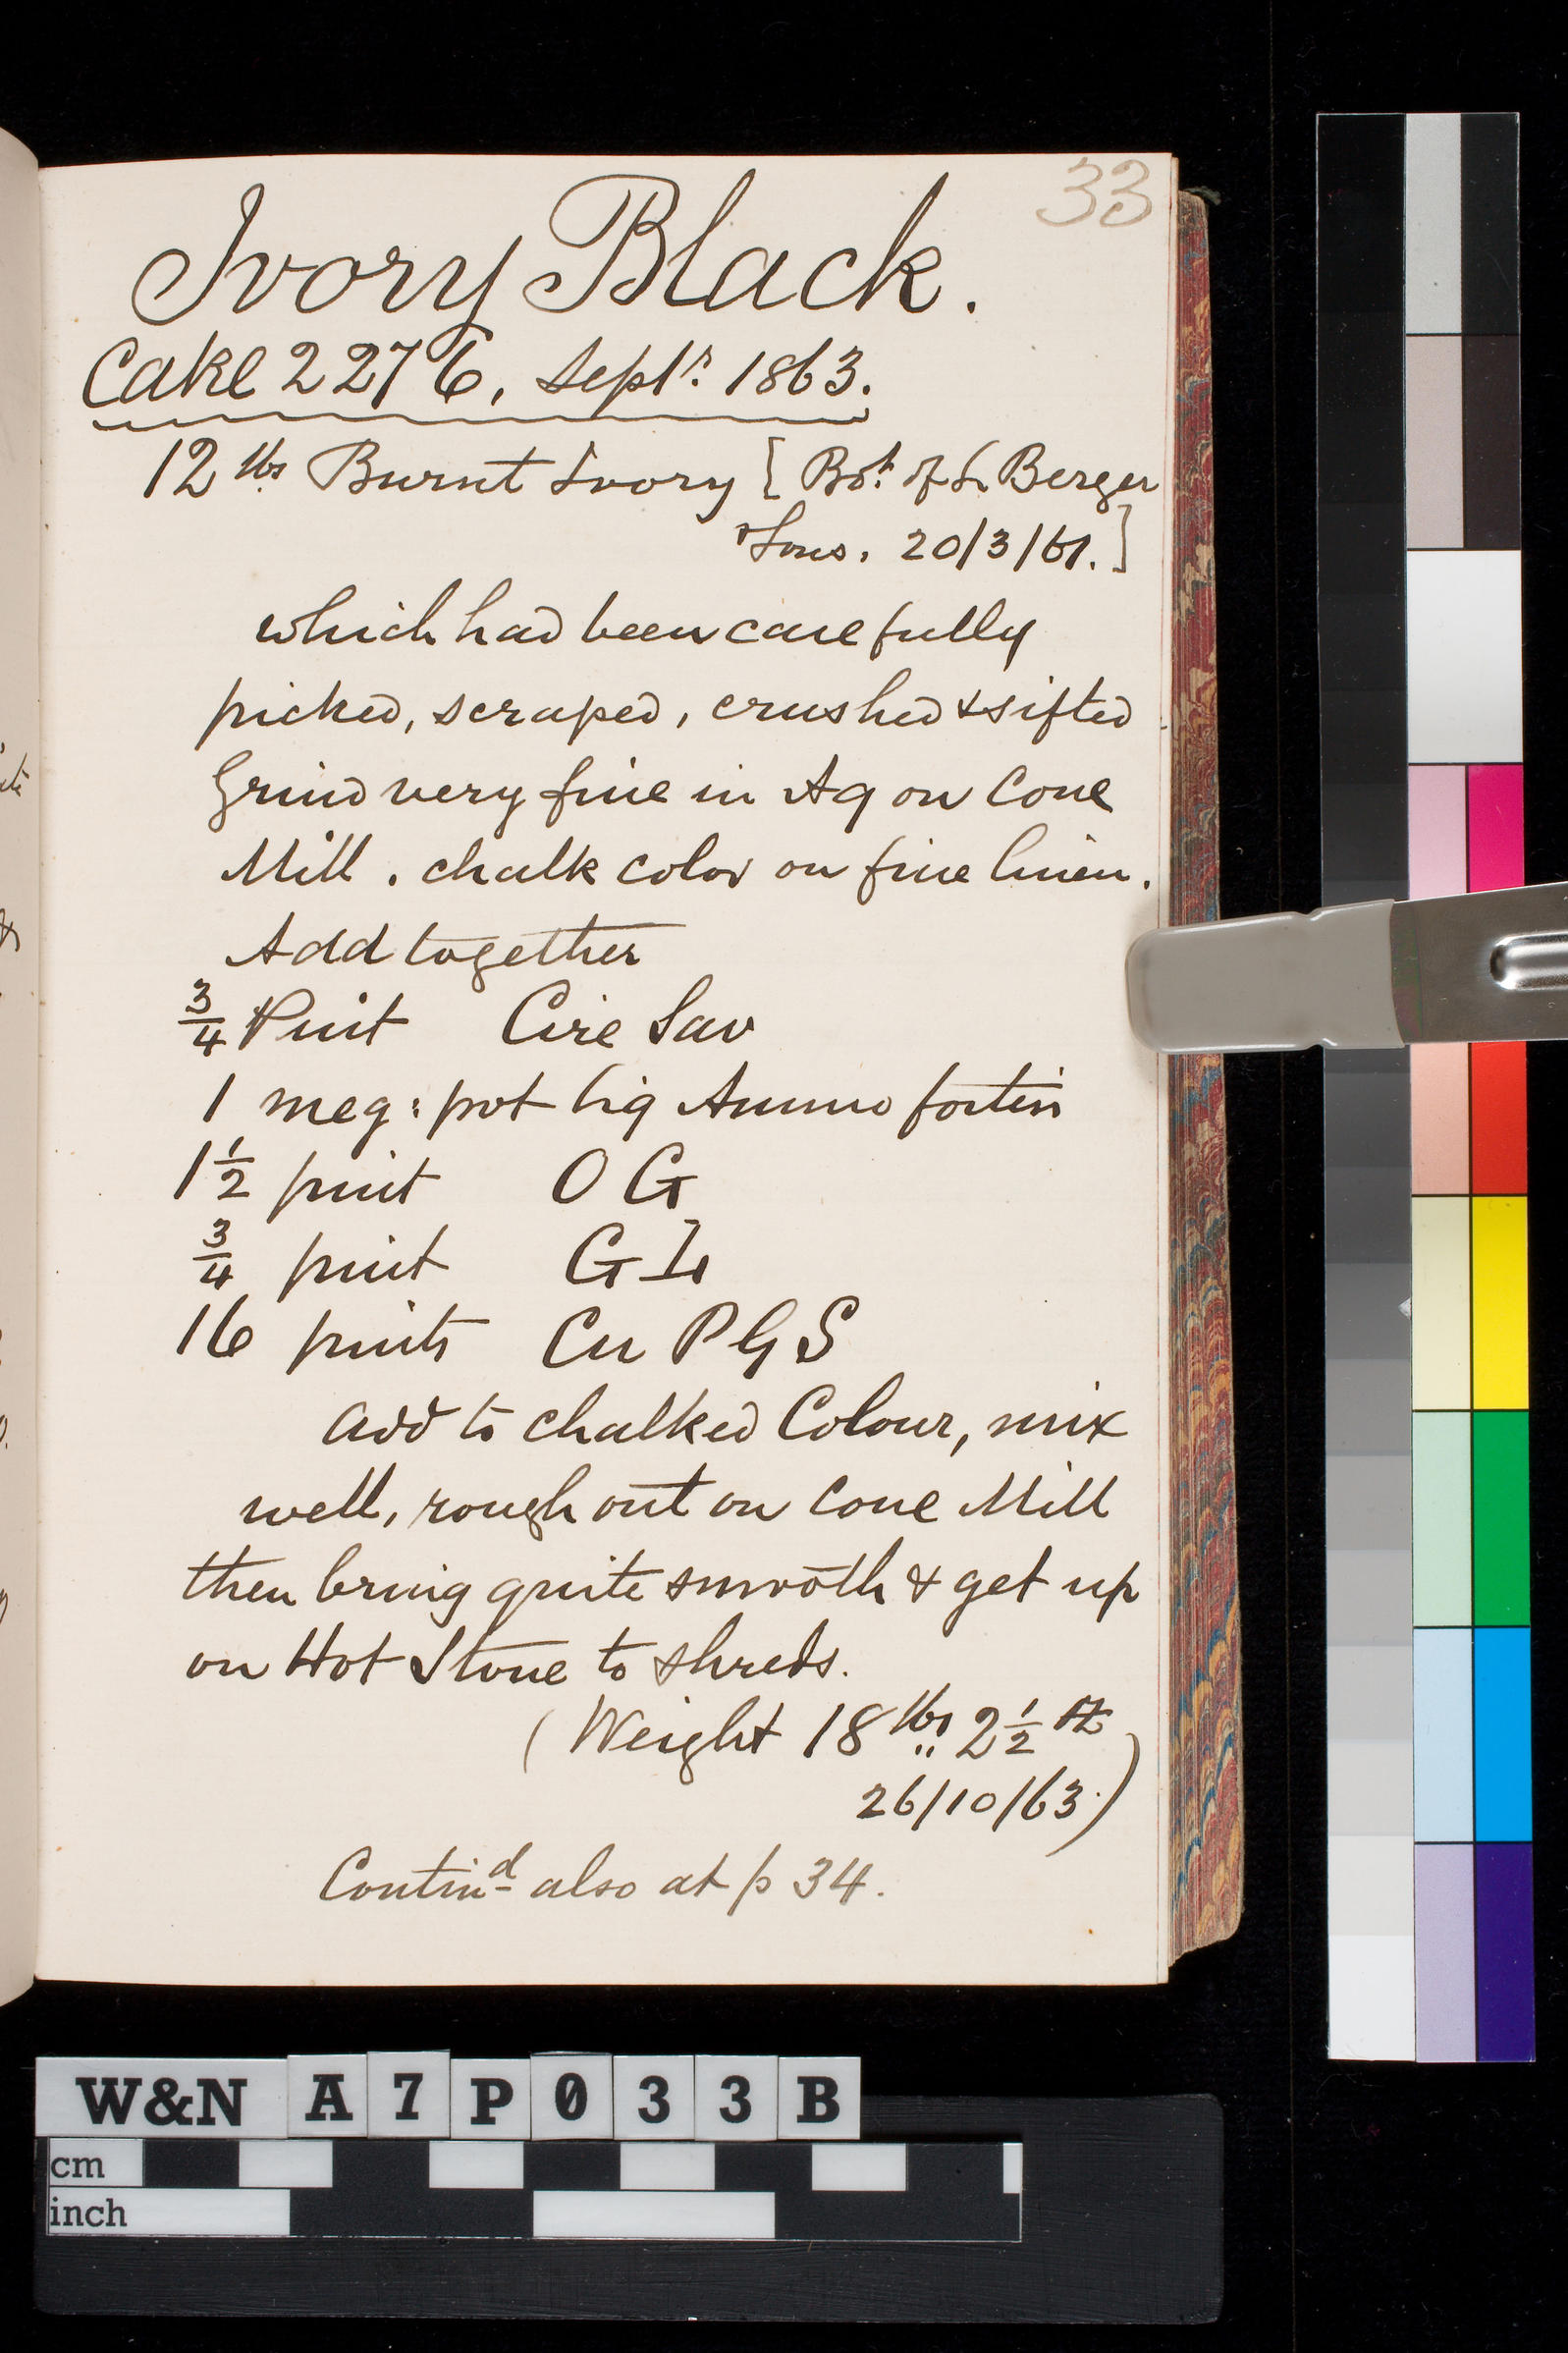 33
Ivory Black.
Cake 2276, Septr. 1863.
12 lbs Burnt Ivory [Bot. of L Berger
& Sons. 20/3/61.]
which had been carefully
picked, scraped, crushed & sifted
Grind very fine in Aq on Cone
Mill. chalk color on fine linen.
Add together
3/4 Pint Cire Sav
1 meg: pot Liq Ammo fortis
1 1/2 pint O G
3/4 pint G L
16 pints Cu P G S
add to chalked Colour, mix
well, rough out on Cone Mill
then bring quite smooth & get up
on Hot Stone to shreds.
(Weight 18 lbs 2 1/2 oz
26/10/63.)
Contind also at p 34.
W&N A7P033B
cm
inch